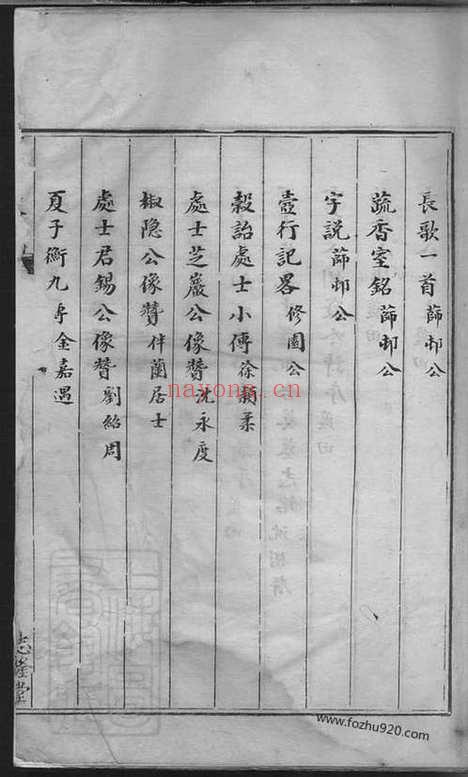 長歌一首 薛邨公
蔬香室銘 薛邨公
字說 薛邨公
壺行記畧 修園公
穀詒處士小傳 徐顏柔
處士芝巖公像贊 沈永度
椒隐公像贊 伴蘭居士
處士君錫公像贊 劉紹周
夏子衡九專 金嘉遇
nayong.cn
www.fozhu920.com